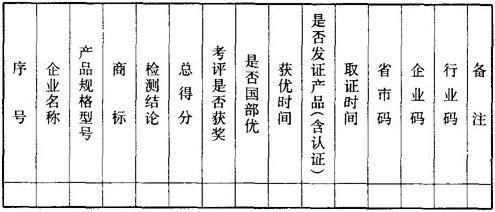 序号
企业名称
产品规格型号
商标
检测结论
总得分
考评是否获奖
是否国部优
获优时间
是否发证产品(含认证)
取证时间
省市码
企业码
行业码
备注